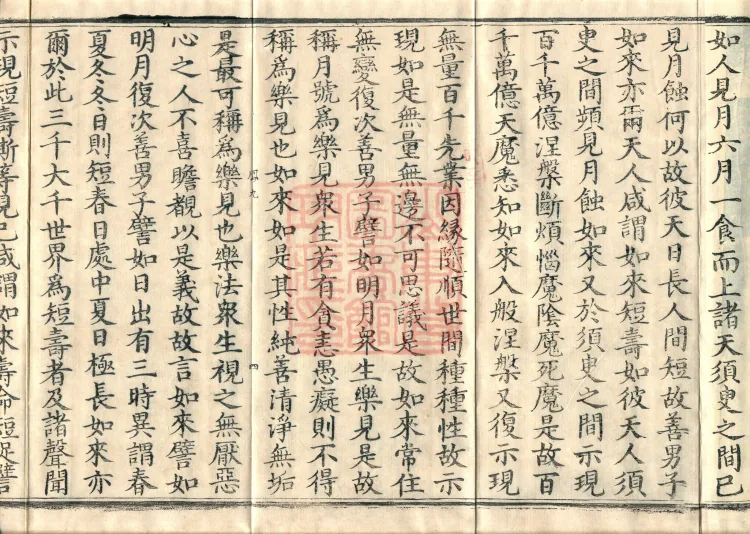 如人見月六月一食而上諸天須臾之間已
見月蝕何以故彼天日長人間短故善男子
如來亦爾天人咸謂如來短壽如彼天人須
臾之間頻見月蝕如來又於須臾之間示現
百千萬億涅槃斷煩惱魔陰魔死魔是故百
千萬億天魔悉知如來入般涅槃又復示現
無量百千先業因緣隨順世間種種性故示
現如是無量無邊不可思議是故如來常住
無變復次善男子譬如明月衆生樂見是故
稱月號為樂見衆生若有貪恚愚癡則不得
稱為樂見也如來如是其性純善清淨無垢
是最可稱為樂見也樂法衆生視之無厭惡
心之人不喜瞻覩以是義故故言如來譬如
明月復次善男子譬如日出有三時異謂春
夏冬冬日則短春日處中夏日極長如來亦
爾於此三千大千世界為短壽者及諸聲聞
示現短壽斯等見已咸謂如來壽命短促譬
四